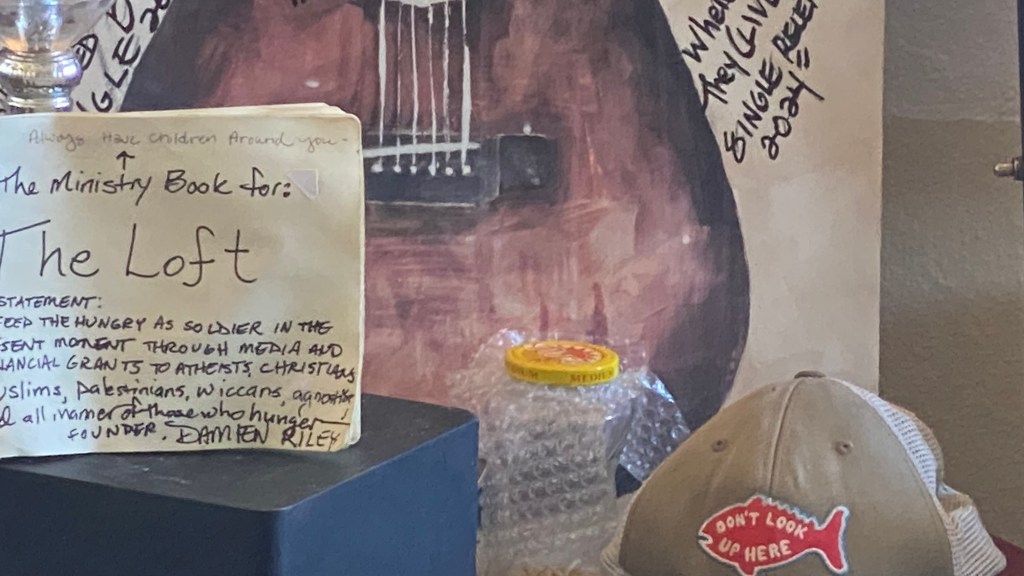 Always Have Children Around you-
The Ministry Book for:
The Loft
STATEMENT:
FEED THE HUNGRY AS SOLDIER IN THE
SENT MOMENT THROUGH MEDIA AND
NANCIAL GRANTS TO ATHEISTS, CHRISTIANS
uslims, palestinians, wiccans, agnostics
d all manner of those who hunger!
FOUNDER. DAMIEN RILEY
When
They (LIVE
SINGLE RELEA
2024=
MEDIUM
DON'T LOOK
UP HERE